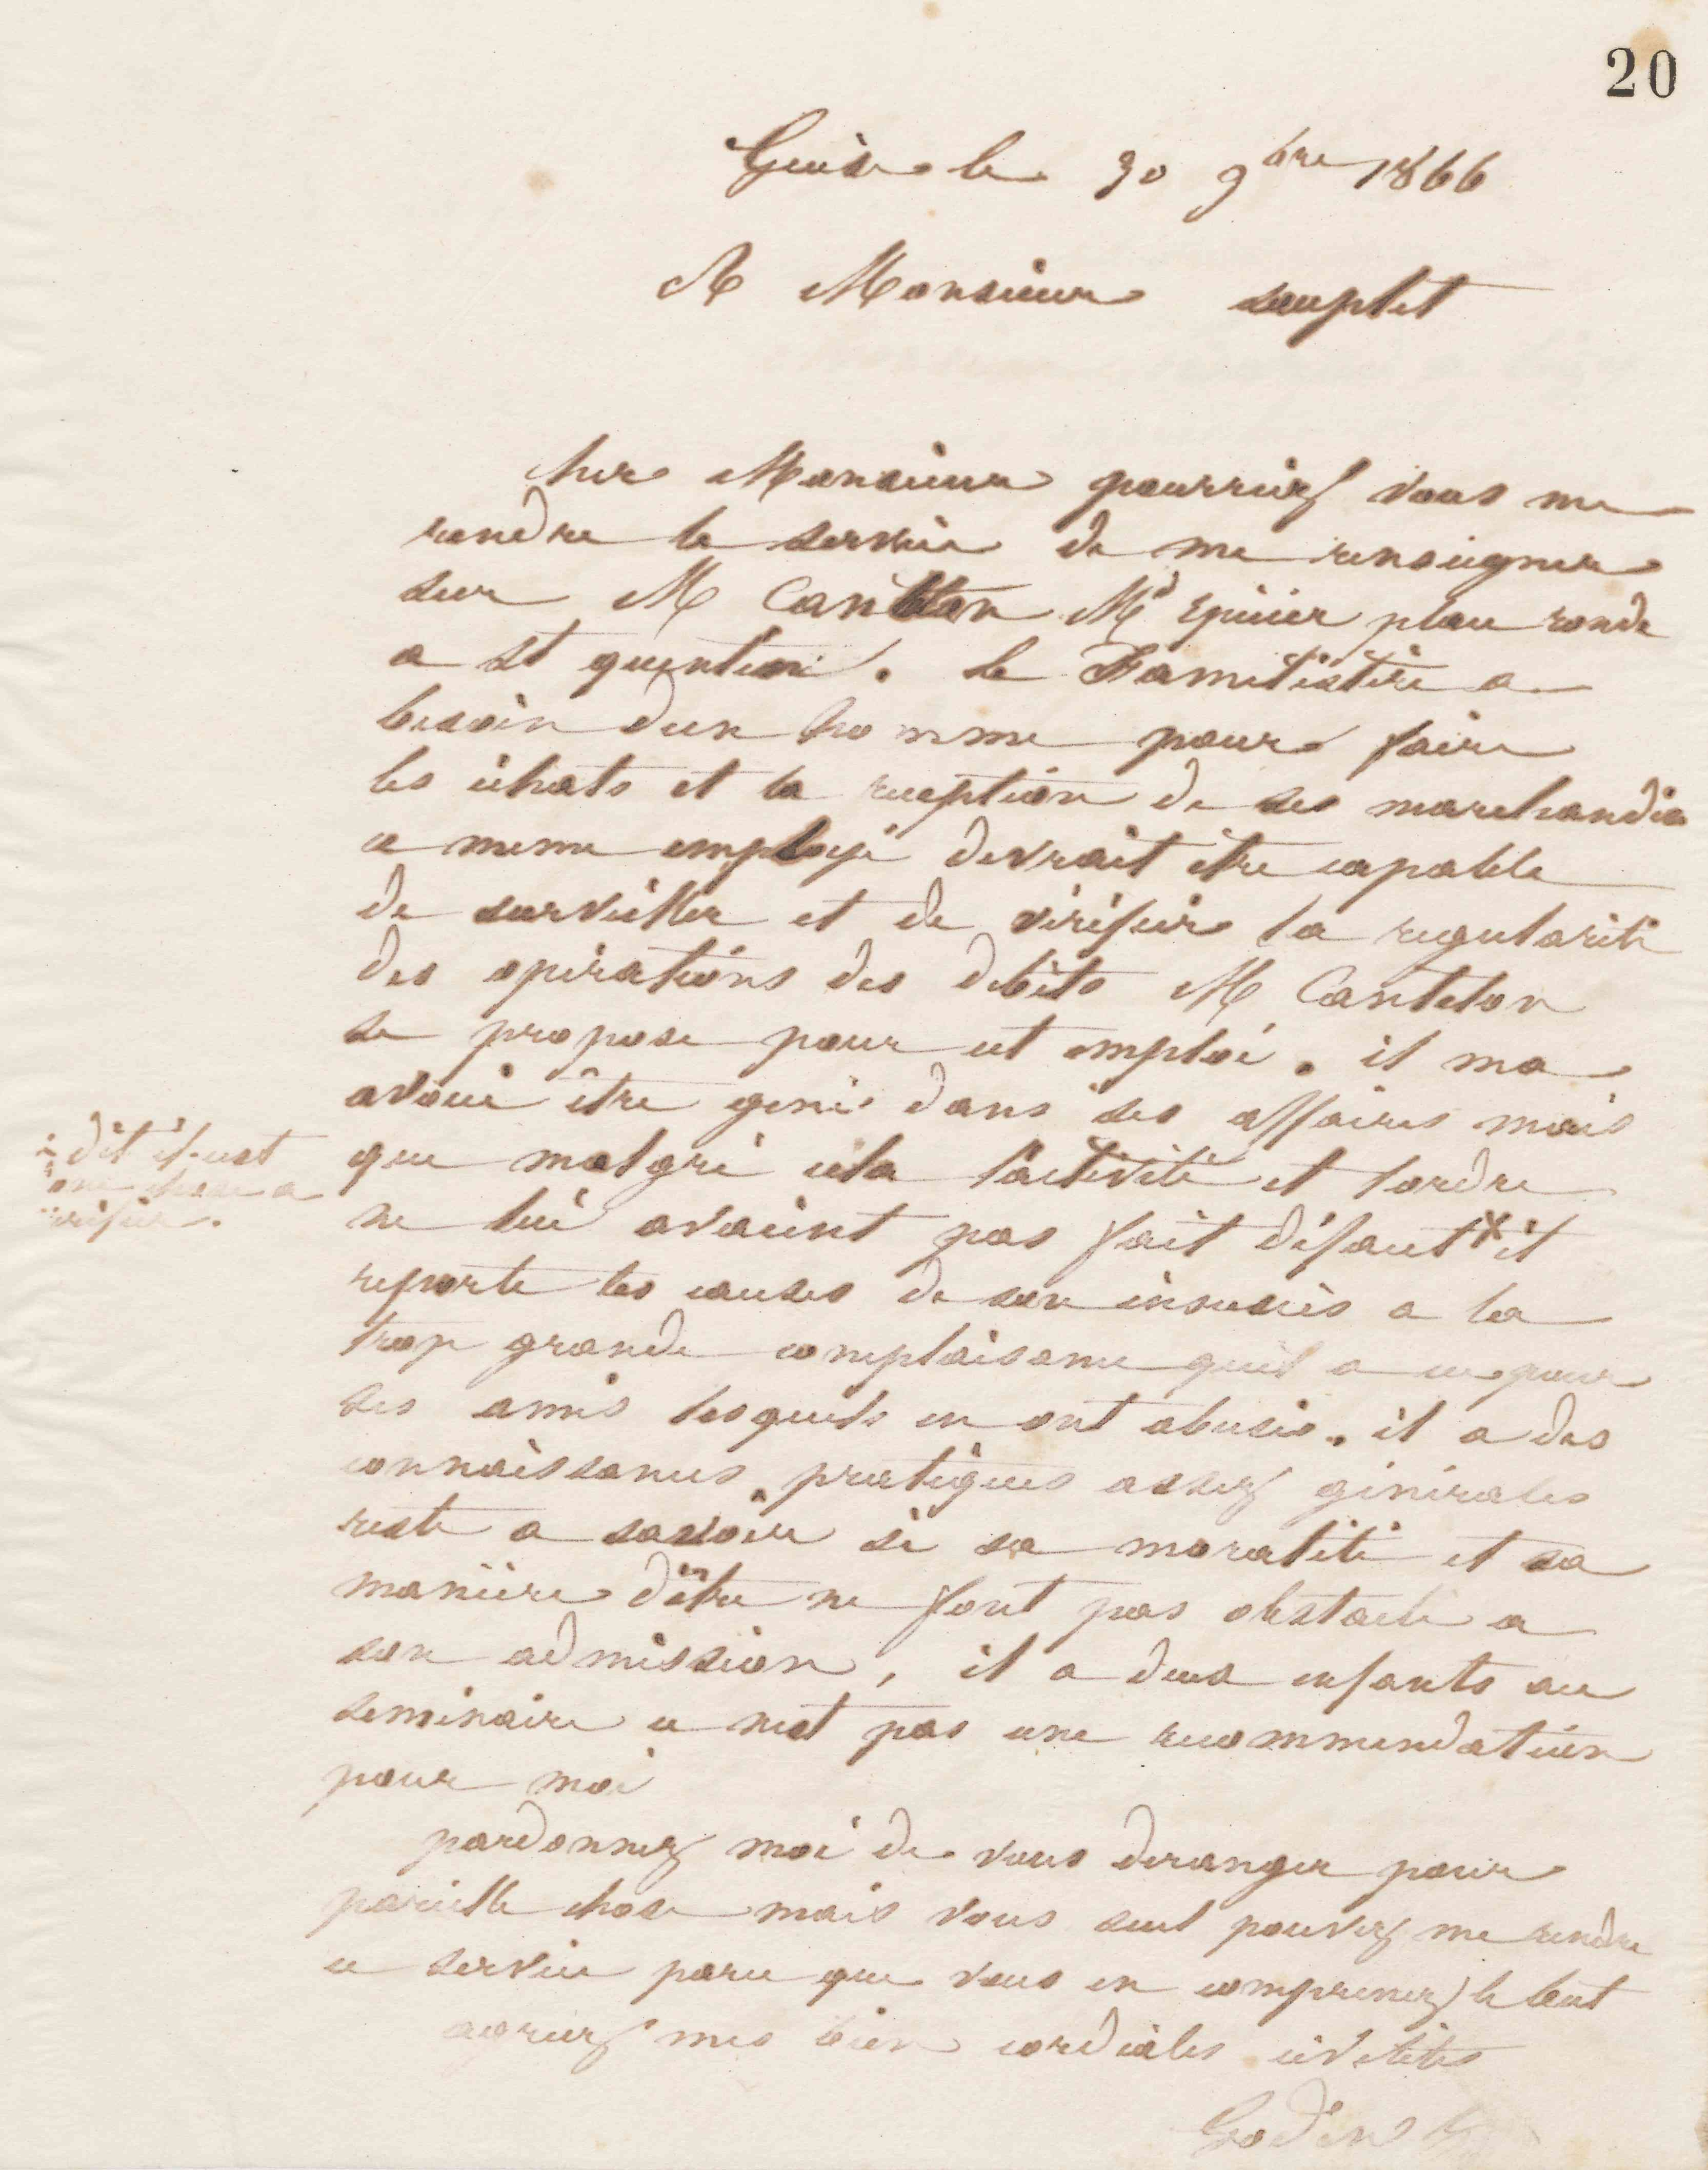 20
Guise le 30 9bre 1866
A Monsieur souplet
cher Monsieur pourriez vous me
rendre le service de me renseigner
sur M Cantelon Md Epicier place ronde
a St quentin. le Familistère a
besoin dun homme pour faire
les achats et la reception de ses marchandis
ce meme employé devrait être capable
de surveiller et de vérifier la regularité
des opérations des débits M Cantelon
se propose pour cet emploi. il ma
avoué être gené dans ses affaires mais
que malgré cela lactivité et lordre
ne lui avaient pas fait défaut x il
dit il cest
une chose a
vérifier.
reporte les causes de son insuccès a la
trop grande complaisance quil a eu pour
ses amis lesquels en ont abusés. il a des
connaissances pratiques assez générales
reste a savoir si sa moralité et sa
manière dêtre ne font pas obstacle a
son admission, il a deux enfants au
seminaire ce nest pas une recommendation
pour moi
pardonnez moi de vous deranger pour
pareille chose mais vous seul pouvez me rendre
ce service parce que vous en comprenez le but
agreez mes bien cordiales civilités
Godin